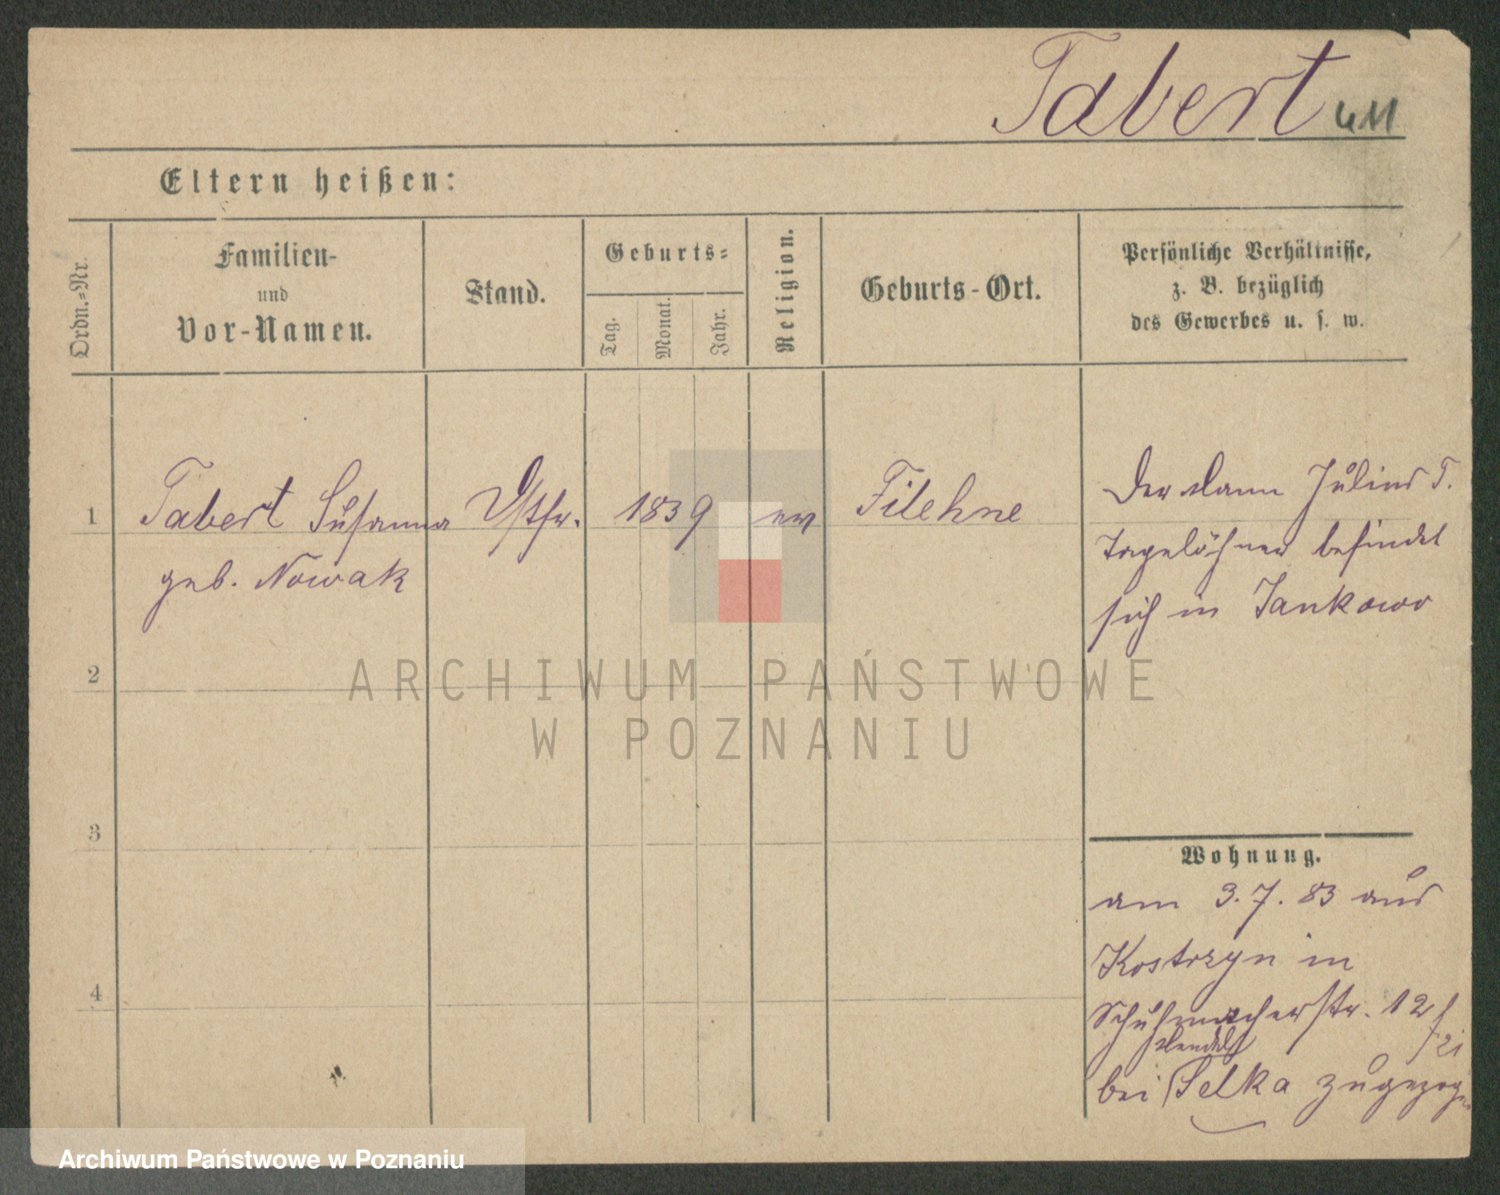 Tabert
Eltern heißen:
Ordn.=Nr.
Familien-
und
Vor-Namen.
Stand.
Geburts=
Tag.
Monat.
Jahr.
Religion.
Geburts-Ort.
Persönliche Verhältnisse,
z. B. bezüglich
des Gewerbes u. s. w.
1 Tabert Susanna 1839 ev Filehne
geb. Nowak
Der Mann Julius T.
Tagelöhner befindet
sich in Jankowo
2
3
4
Wohnung.
am 3.7.83 aus
Kostrzyn in
Schuhmacherstr. 12
bei Selka zugezogen
ARCHIWUM PAŃSTWOWE
W POZNANIU
Archiwum Państwowe w Poznaniu